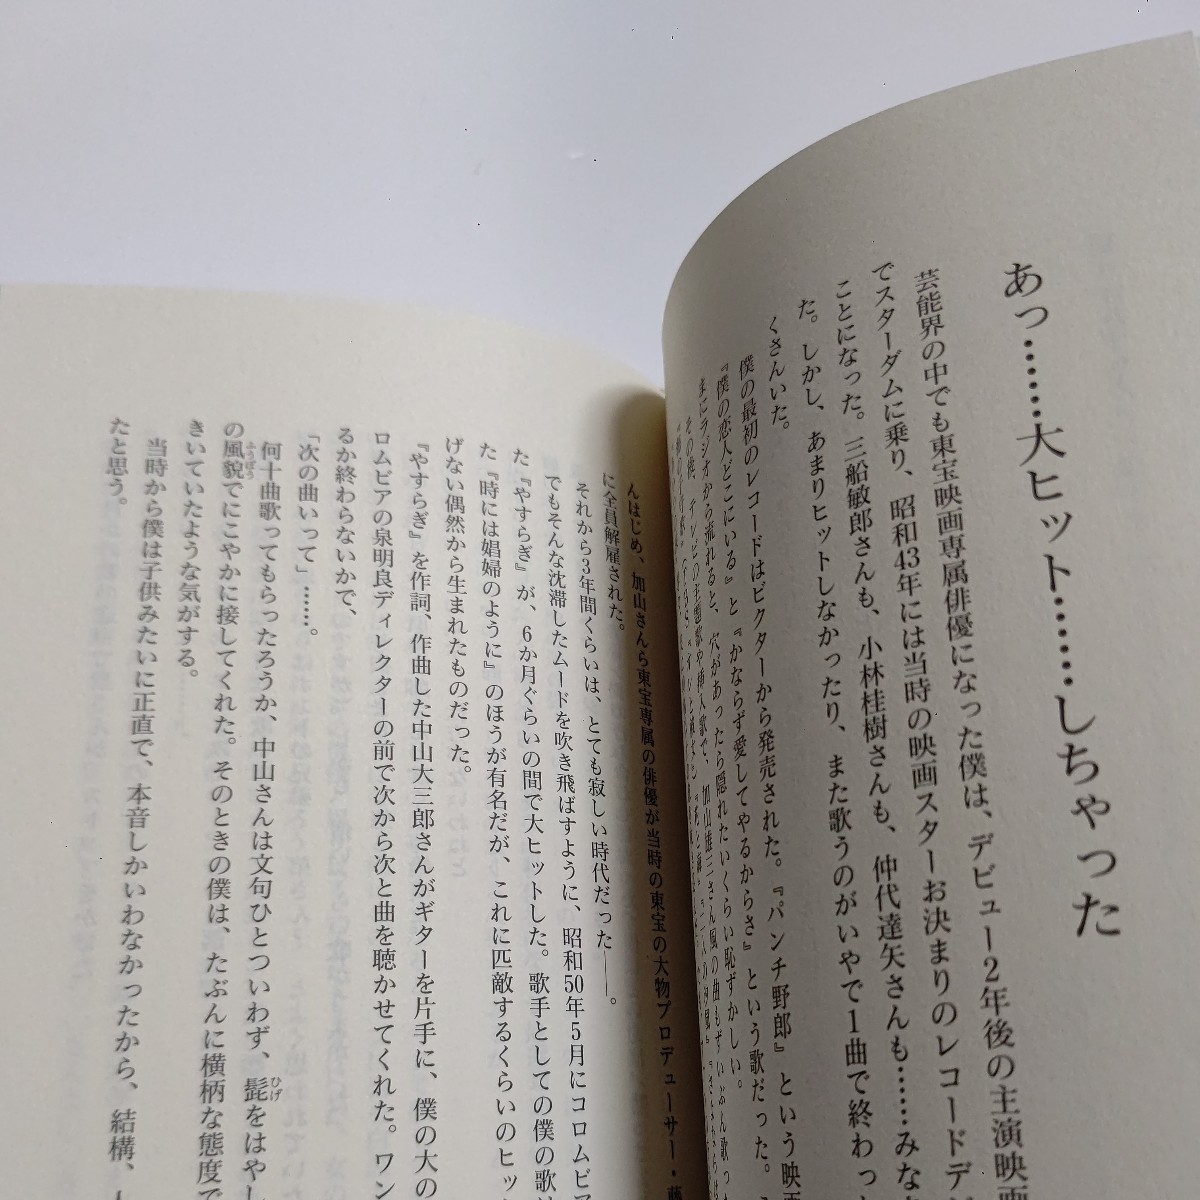 あっ……大ヒット……しちゃった
芸能界の中でも東宝映画専属俳優になった僕は、デビュー2年後の主演映画
でスターダムに乗り、昭和43年には当時の映画スターお決まりのレコードデ
ことになった。三船敏郎さんも、小林桂樹さんも、仲代達矢さんも……みな
た。しかし、あまりヒットしなかったり、また歌うのがいやで1曲で終わっ
くさんいた。
僕の最初のレコードはビクターから発売された。『パンチ野郎』という映
『僕の恋人どこにいる』と『かならず愛してやるからさ』という歌だった。
まにラジオから流れると、穴があったら隠れたいくらい恥ずかしい。
その後、テレビの主題歌や挿入歌で、加山雄三さん風の曲もずいぶん歌っ
んはじめ、加山さんら東宝専属の俳優が当時の東宝の大物プロデューサー・藤
に全員解雇された。
それから3年間くらいは、とても寂しい時代だった――。
でもそんな沈滞したムードを吹き飛ばすように、昭和50年5月にコロムビア
た『やすらぎ』が、6か月ぐらいの間で大ヒットした。歌手としての僕の歌は
た『時には娼婦のように』のほうが有名だが、これに匹敵するくらいのヒッ
げない偶然から生まれたものだった。
『やすらぎ』を作詞、作曲した中山大三郎さんがギターを片手に、僕の大の
ロムビアの泉明良ディレクターの前で次から次と曲を聴かせてくれた。ワン
るか終わらないかで、
「次の曲いって」……。
何十曲歌ってもらったろうか、中山さんは文句ひとついわず、髭をはやし
の風貌でにこやかに接してくれた。そのときの僕は、たぶんに横柄な態度で
きいていたような気がする。
当時から僕は子供みたいに正直で、本音しかいわなかったから、結構、
たと思う。